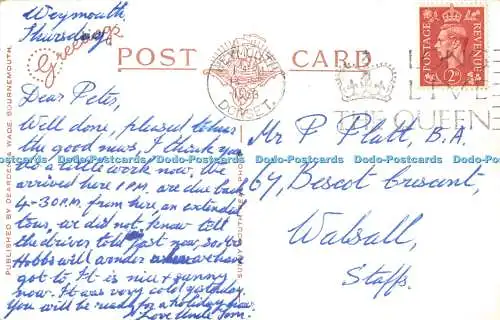 Weymouth,
Thursday
Greetings
POST CARD
WEYMOUTH
DORSET.
POSTAGE REVENUE
2D
LIVE
THE QUEEN
Dear Peter,
Well done, pleased to hear
the good news, I think you
do a little work now. We
arrived here 1 P.M. are due back
4-30 P.M. from here an extended
tour, we did not know till
the driver told just now, so Mrs
Hobbs will wonder where we have
got to. It is nice & sunny
now. It was very cold yesterday.
You will be ready for a holiday now.
Love Uncle Tom.
Mr P Platt, B.A.
67, Bescot Crescent,
Walsall,
Staffs.
PUBLISHED BY DEARDEN & WADE, BOURNEMOUTH.
Dodo-Postcards Dodo-Postcards Dodo-Postcards Dodo-Postcards Dodo-Postcards